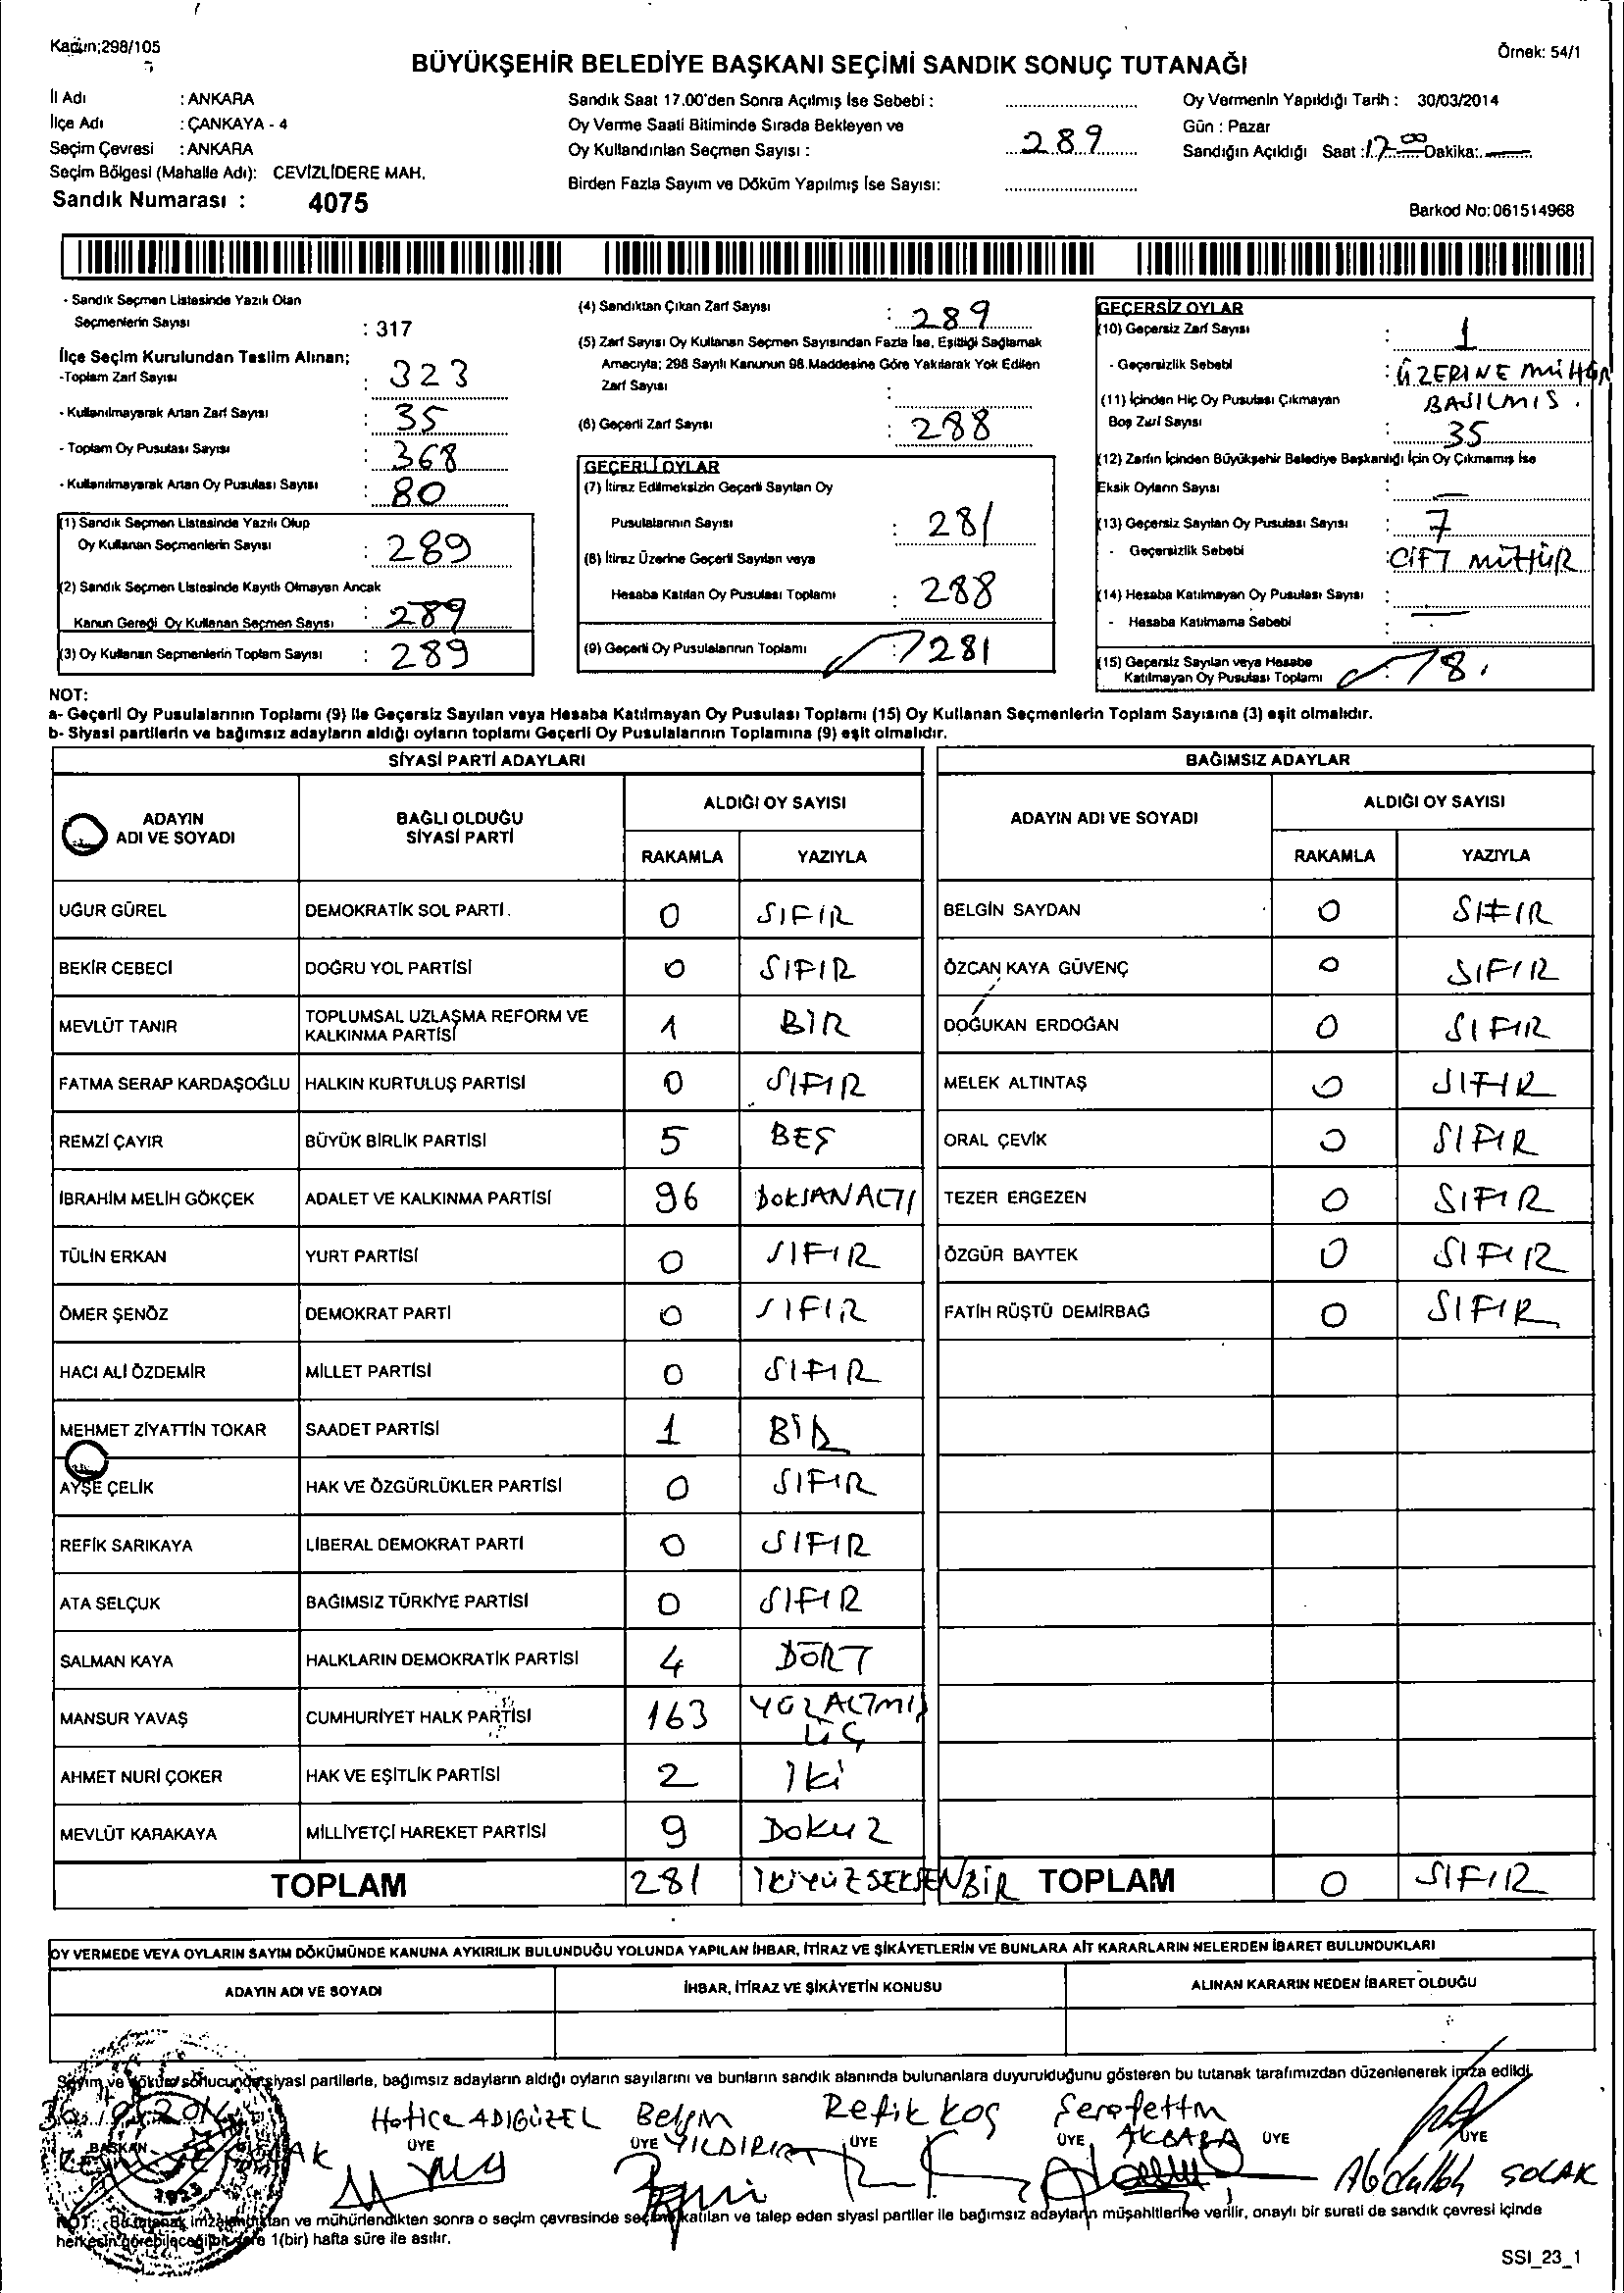 Kanun;298/105
Örnek: 54/1
BÜYÜKŞEHİR BELEDİYE BAŞKANI SEÇİMİ SANDIK SONUÇ TUTANAĞI
İl Adı : ANKARA
İlçe Adı : ÇANKAYA - 4
Seçim Çevresi : ANKARA
Seçim Bölgesi (Mahalle Adı): CEVİZLİDERE MAH.
Sandık Numarası : 4075
Sandık Saat 17.00'den Sonra Açılmış İse Sebebi :
Oy Verme Saati Bitiminde Sırada Bekleyen ve
Oy Kullandırılan Seçmen Sayısı : 289
Birden Fazla Sayım ve Döküm Yapılmış İse Sayısı:
Oy Vermenin Yapıldığı Tarih : 30/03/2014
Gün : Pazar
Sandığın Açıldığı Saat : 17 00 Dakika: —
Barkod No:061514968
- Sandık Seçmen Listesinde Yazılı Olan
Seçmenlerin Sayısı : 317
İlçe Seçim Kurulundan Teslim Alınan;
-Toplam Zarf Sayısı : 323
- Kullanılmayarak Artan Zarf Sayısı : 35
- Toplam Oy Pusulası Sayısı : 368
- Kullanılmayarak Artan Oy Pusulası Sayısı : 80
(1) Sandık Seçmen Listesinde Yazılı Olup
Oy Kullanan Seçmenlerin Sayısı : 289
(2) Sandık Seçmen Listesinde Kayıtlı Olmayan Ancak
Kanun Gereği Oy Kullanan Seçmen Sayısı : 289
(3) Oy Kullanan Seçmenlerin Toplam Sayısı : 289
(4) Sandıktan Çıkan Zarf Sayısı : 289
(5) Zarf Sayısı Oy Kullanan Seçmen Sayısından Fazla İse, Eşitliği Sağlamak
Amacıyla; 298 Sayılı Kanunun 98.Maddesine Göre Yakılarak Yok Edilen
Zarf Sayısı :
(6) Geçerli Zarf Sayısı : 288
GEÇERLİ OYLAR
(7) İtiraz Edilmeksizin Geçerli Sayılan Oy
Pusulalarının Sayısı : 281
(8) İtiraz Üzerine Geçerli Sayılan veya
Hesaba Katılan Oy Pusulası Toplamı : 288
(9) Geçerli Oy Pusulalarının Toplamı : 281
GEÇERSİZ OYLAR
(10) Geçersiz Zarf Sayısı : 1
- Geçersizlik Sebebi : ÜZERİNE MÜHÜR
BASILMIS .
(11) İçinden Hiç Oy Pusulası Çıkmayan
Boş Zarf Sayısı : 35
(12) Zarfın İçinden Büyükşehir Belediye Başkanlığı İçin Oy Çıkmamış İse
Eksik Oyların Sayısı : —
(13) Geçersiz Sayılan Oy Pusulası Sayısı : 7
- Geçersizlik Sebebi : CİFT MÜHÜR
(14) Hesaba Katılmayan Oy Pusulası Sayısı : —
- Hesaba Katılmama Sebebi : —
(15) Geçersiz Sayılan veya Hesaba
Katılmayan Oy Pusulası Toplamı : 8
NOT:
a- Geçerli Oy Pusulalarının Toplamı (9) ile Geçersiz Sayılan veya Hesaba Katılmayan Oy Pusulası Toplamı (15) Oy Kullanan Seçmenlerin Toplam Sayısına (3) eşit olmalıdır.
b- Siyasi partilerin ve bağımsız adayların aldığı oyların toplamı Geçerli Oy Pusulalarının Toplamına (9) eşit olmalıdır.
SİYASİ PARTİ ADAYLARI
BAĞIMSIZ ADAYLAR
ADAYIN ADI VE SOYADI
BAĞLI OLDUĞU SİYASİ PARTİ
ALDIĞI OY SAYISI
RAKAMLA YAZIYLA
ADAYIN ADI VE SOYADI
ALDIĞI OY SAYISI
RAKAMLA YAZIYLA
UĞUR GÜREL DEMOKRATİK SOL PARTİ. 0 SIFIR BELGİN SAYDAN 0 SIFIR
BEKİR CEBECİ DOĞRU YOL PARTİSİ 0 SIFIR ÖZCAN KAYA GÜVENÇ 0 SIFIR
MEVLÜT TANIR TOPLUMSAL UZLAŞMA REFORM VE KALKINMA PARTİSİ 1 BİR DOĞUKAN ERDOĞAN 0 SIFIR
FATMA SERAP KARDAŞOĞLU HALKIN KURTULUŞ PARTİSİ 0 SIFIR MELEK ALTINTAŞ 0 SIFIR
REMZİ ÇAYIR BÜYÜK BİRLİK PARTİSİ 5 BEŞ ORAL ÇEVİK 0 SIFIR
İBRAHİM MELİH GÖKÇEK ADALET VE KALKINMA PARTİSİ 96 DOKSANALTI TEZER ERGEZEN 0 SIFIR
TÜLİN ERKAN YURT PARTİSİ 0 SIFIR ÖZGÜR BAYTEK 0 SIFIR
ÖMER ŞENÖZ DEMOKRAT PARTİ 0 SIFIR FATİH RÜŞTÜ DEMİRBAĞ 0 SIFIR
HACI ALİ ÖZDEMİR MİLLET PARTİSİ 0 SIFIR
MEHMET ZİYATTİN TOKAR SAADET PARTİSİ 1 BİR
AYŞE ÇELİK HAK VE ÖZGÜRLÜKLER PARTİSİ 0 SIFIR
REFİK SARIKAYA LİBERAL DEMOKRAT PARTİ 0 SIFIR
ATA SELÇUK BAĞIMSIZ TÜRKİYE PARTİSİ 0 SIFIR
SALMAN KAYA HALKLARIN DEMOKRATİK PARTİSİ 4 DÖRT
MANSUR YAVAŞ CUMHURİYET HALK PARTİSİ 163 YÜZALTMIŞ ÜÇ
AHMET NURİ ÇOKER HAK VE EŞİTLİK PARTİSİ 2 İki
MEVLÜT KARAKAYA MİLLİYETÇİ HAREKET PARTİSİ 9 DOKUZ
TOPLAM 281 İKİYÜZSEKSENBİR TOPLAM 0 SIFIR
OY VERMEDE VEYA OYLARIN SAYIM DÖKÜMÜNDE KANUNA AYKIRILIK BULUNDUĞU YOLUNDA YAPILAN İHBAR, İTİRAZ VE ŞİKÂYETLERİN VE BUNLARA AİT KARARLARIN NELERDEN İBARET BULUNDUKLARI
ADAYIN ADI VE SOYADI İHBAR, İTİRAZ VE ŞİKÂYETİN KONUSU ALINAN KARARIN NEDEN İBARET OLDUĞU
Sayım ve döküm sonucunda siyasi partilerle, bağımsız adayların aldığı oyların sayılarını ve bunların sandık alanında bulunanlara duyurulduğunu gösteren bu tutanak tarafımızdan düzenlenerek imza edildi.
Hatice ADIGÜZEL Belgin YILDIRIM Refik Koç Şerafettin AKBABA Abdullah SOLAK
BAŞKAN ÜYE ÜYE ÜYE ÜYE ÜYE ÜYE
NOT: Bu tutanak imzalandıktan ve mühürlendikten sonra o seçim çevresinde seçime katılan ve talep eden siyasi partiler ile bağımsız adayların müşahitlerine verilir, onaylı bir sureti de sandık çevresi içinde
herkesin görebileceği bir yere 1(bir) hafta süre ile asılır.
SSI_23_1